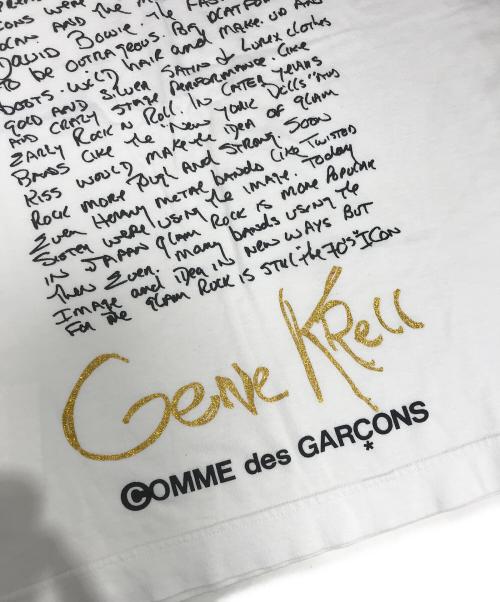 ICONS WERE THE M
OCAN AND THE
DAVID BOWIE. BIG PLATFORM
TO BE OUTRAGEOUS.
BOOTS. WILD HAIR AND MAKE. UP AND
GOLD AND SILVER SATIN & LUREX CLOTHES
AND CRAZY STAGE PERFORMANCE. LIKE
EARLY ROCK N ROLL. IN LATER YEARS
BANDS LIKE THE "NEW YORK DOLLS" AND
KISS WOULD MAKE THE IDEA OF GLAM
ROCK MORE TOUGH AND STRONG. SOON
EVEN HEAVY METAL BANDS LIKE TWISTED
SISTER WERE USING THE IMAGE. TODAY
IN JAPAN GLAM ROCK IS MORE POPULAR
THEN EVER. MANY BANDS USING THE
IMAGE AND IDEA IN NEW WAYS BUT
FOR ME GLAM ROCK IS STILL "THE 70'S" ICON
Gene Krell
COMME des GARÇONS
*